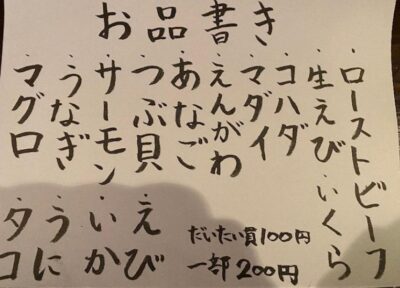 お品書き
・ローストビーフ
・生えび・いくら
・コハダ
・マダイ
・えんがわ
・あなご
・つぶ貝
・サーモン
・うなぎ
・マグロ
・えび
・いか
・うに
・タコ
だいたい 100円
一部200円